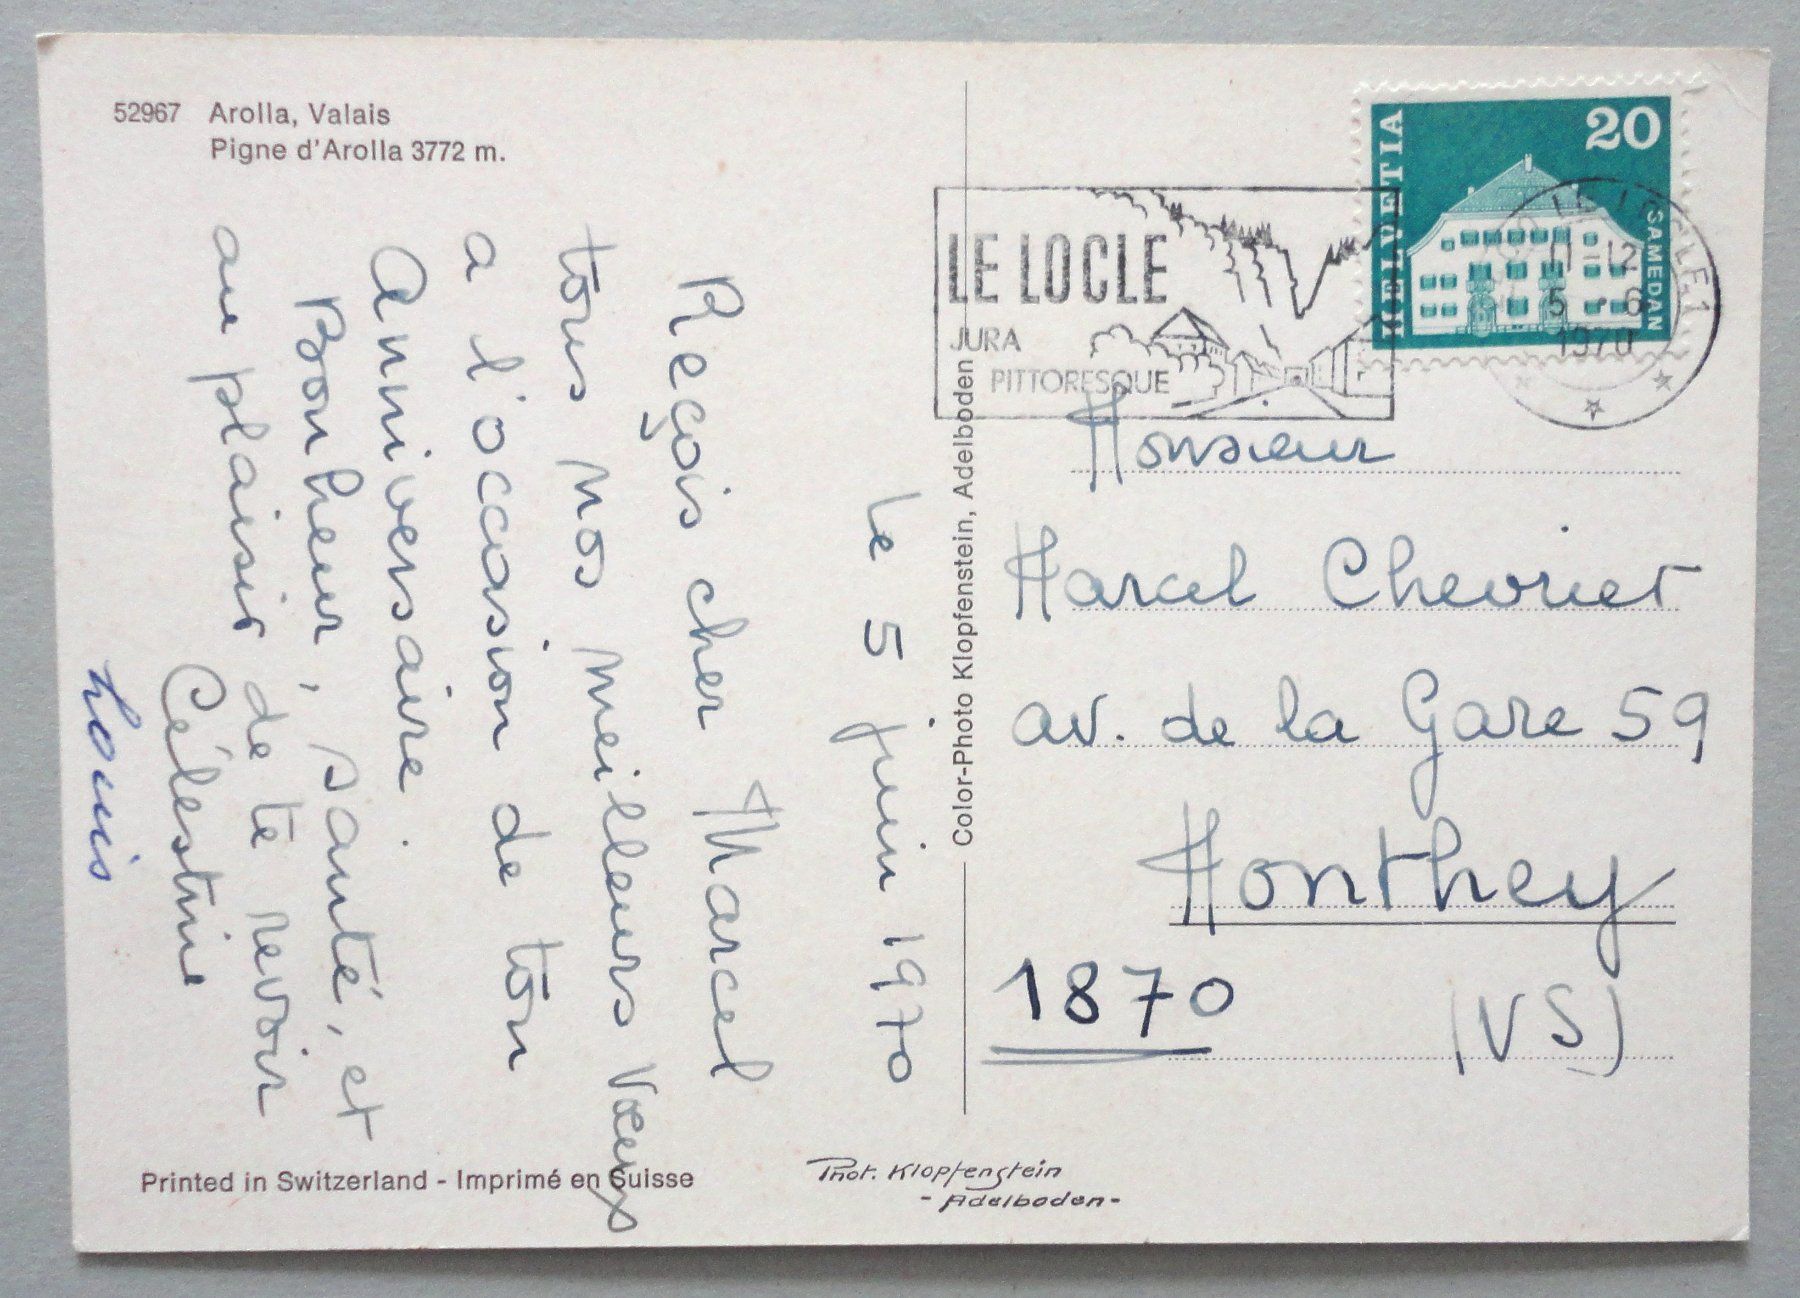 52967 Arolla, Valais
Pigne d'Arolla 3772 m.
Le 5 juin 1970
Reçois cher Marcel
tous nos meilleurs Vœux
a l'occasion de ton
Anniversaire
Bonheur, santé, et
au plaisir de te revoir
Célestine
Louis
Printed in Switzerland - Imprimé en Suisse
Color-Photo Klopfenstein, Adelboden
Phot. Klopfenstein
- Adelboden -
LE LOCLE
JURA
PITTORESQUE
HELVETIA
20
SAMEDAN
11-12
5.6
1970
Monsieur
Marcel Chevrier
av. de la Gare 59
Monthey
1870 (VS)